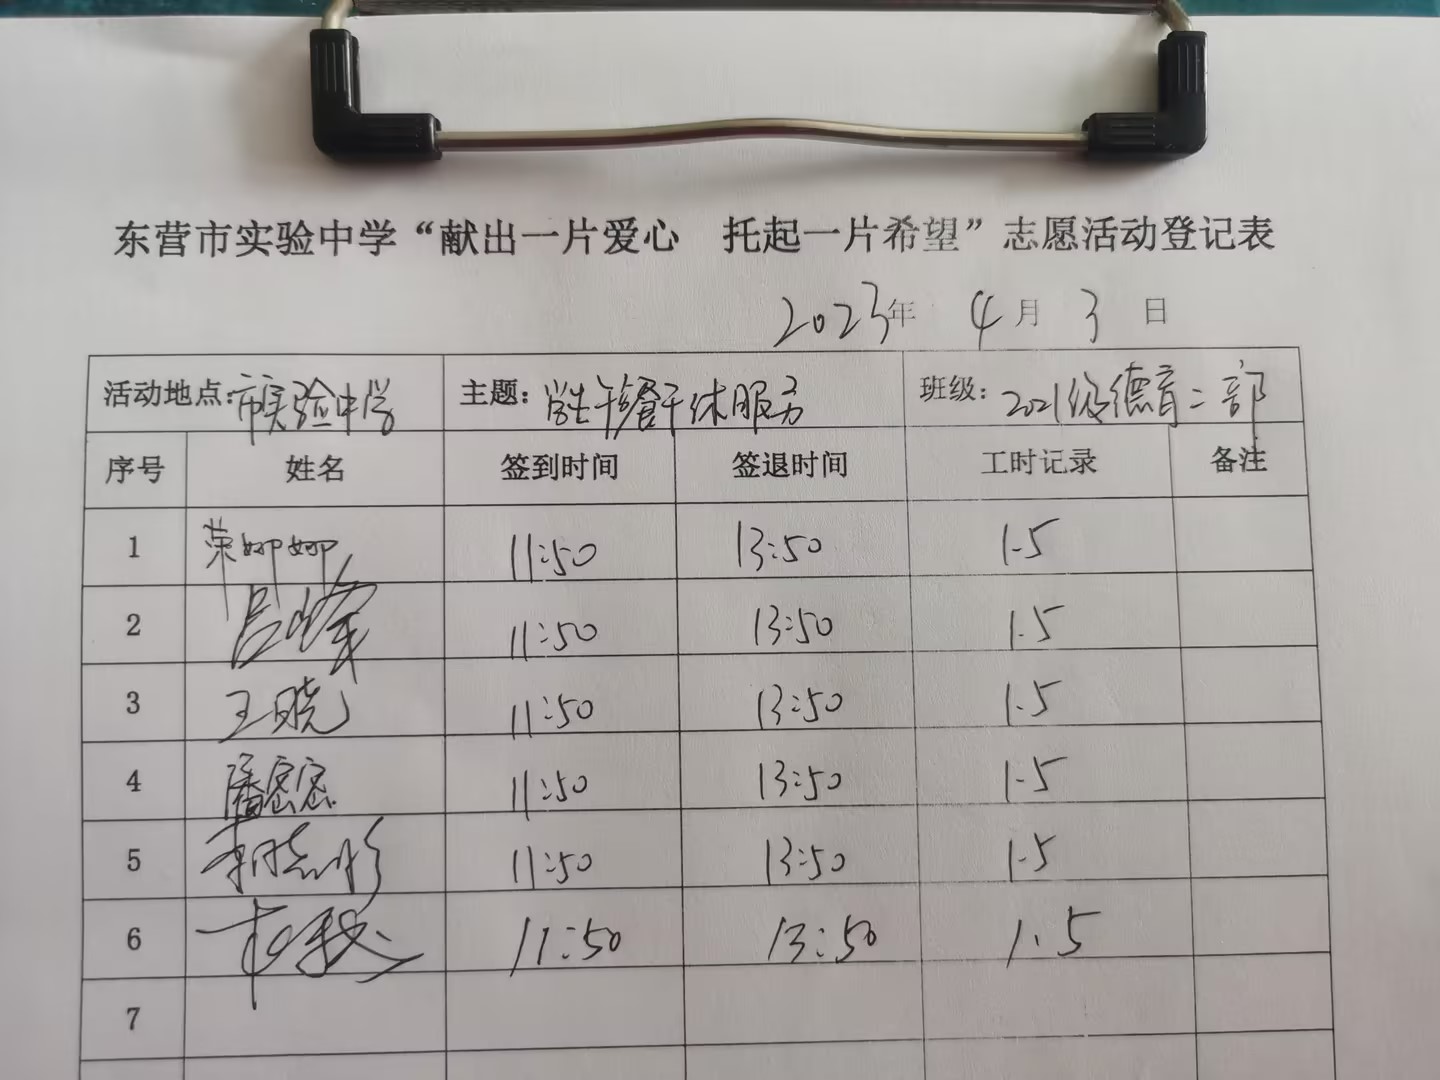 东营市实验中学“献出一片爱心 托起一片希望”志愿活动登记表
2023年 4月 3日
活动地点:市实验中学 主题:学生午餐午休服务 班级:2021级德育二部
序号 姓名 签到时间 签退时间 工时记录 备注
1 荣娜娜 11:50 13:50 1.5
2 吕峰 11:50 13:50 1.5
3 王晓 11:50 13:50 1.5
4 潘密密 11:50 13:50 1.5
5 11:50 13:50 1.5
6 11:50 13:50 1.5
7